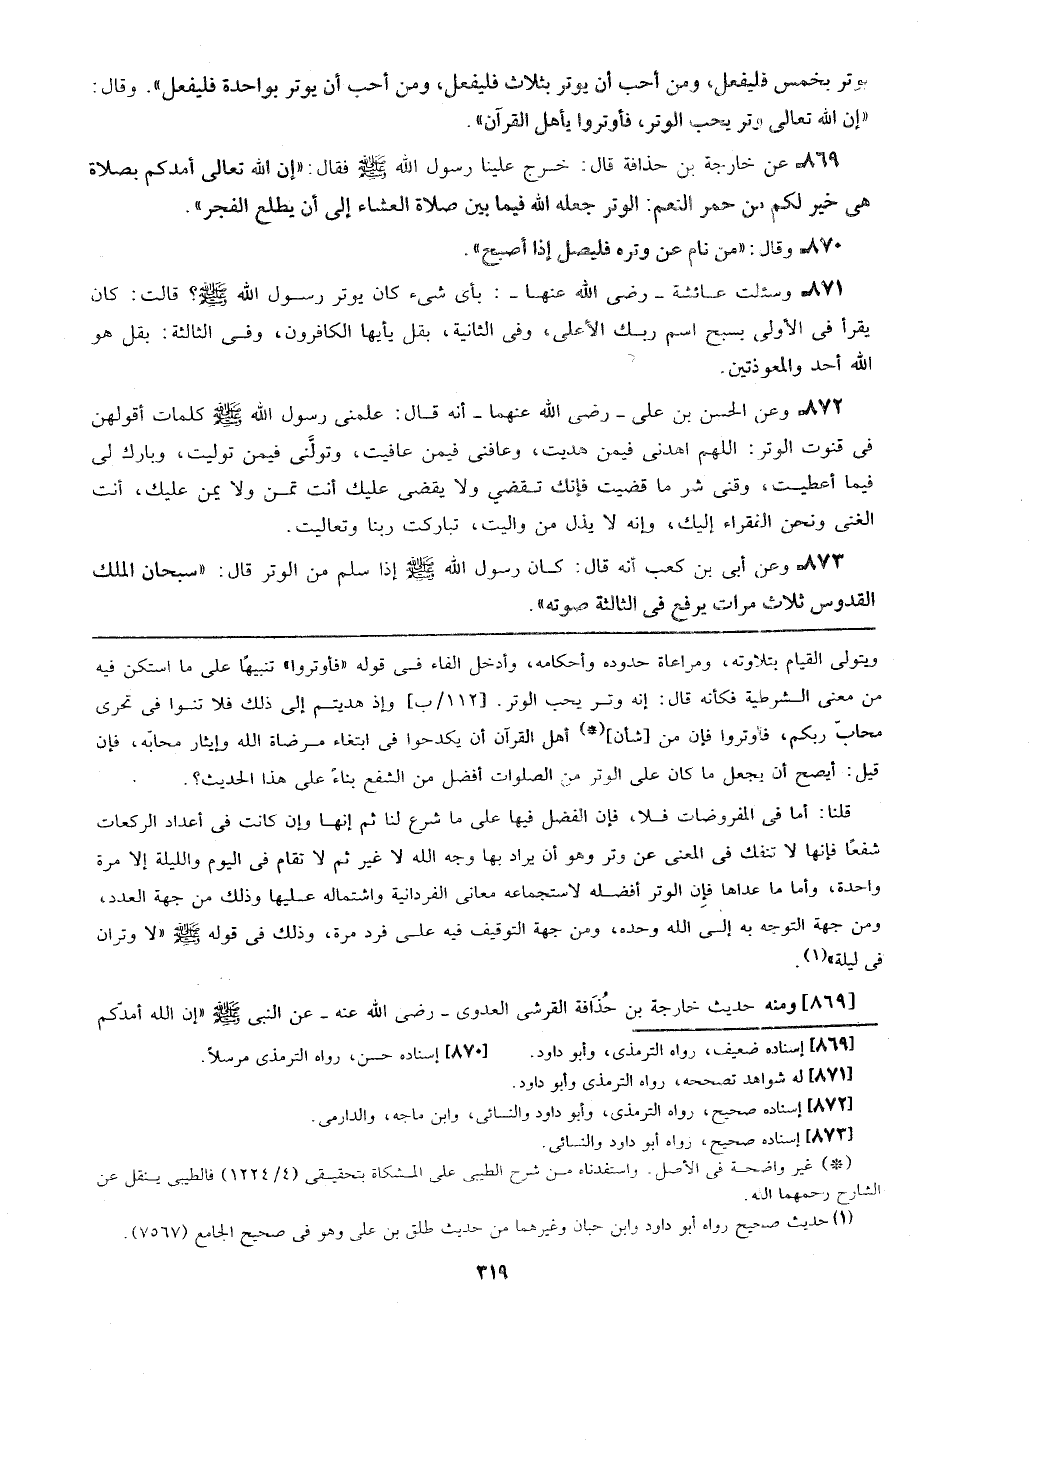 يوتر بخمس فليفعل، ومن أحب أن يوتر بثلاث فليفعل، ومن أحب أن يوتر بواحدة فليفعل». وقال:
«إن الله تعالى وتر يحب الوتر، فأوتروا يأهل القرآن».
٨٦٩ـ عن خارجة بن حذافة قال: خرج علينا رسول الله ﷺ فقال: «إن الله تعالى أمدكم بصلاة
هى خير لكم من حمر النعم: الوتر جعله الله فيما بين صلاة العشاء إلى أن يطلع الفجر».
٨٧٠ـ وقال: «من نام عن وتره فليصل إذا أصبح».
٨٧١ـ وسئلت عائشة ـ رضى الله عنها ـ : بأى شىء كان يوتر رسول الله ﷺ؟ قالت: كان
يقرأ فى الأولى بسبح اسم ربك الأعلى، وفى الثانية، بقل يأيها الكافرون، وفى الثالثة: بقل هو
الله أحد والمعوذتين.
٨٧٢ـ وعن الحسن بن على ـ رضى الله عنهما ـ أنه قال: علمنى رسول الله ﷺ كلمات أقولهن
فى قنوت الوتر: اللهم اهدنى فيمن هديت، وعافنى فيمن عافيت، وتولَّنى فيمن توليت، وبارك لى
فيما أعطيت، وقنى شر ما قضيت فإنك تقضي ولا يقضى عليك أنت تمن ولا يمن عليك، أنت
الغنى ونحن الفقراء إليك، وإنه لا يذل من واليت، تباركت ربنا وتعاليت.
٨٧٣ـ وعن أبى بن كعب أنه قال: كان رسول الله ﷺ إذا سلم من الوتر قال: «سبحان الملك
القدوس ثلاث مرات يرفع فى الثالثة صوته».
ويتولى القيام بتلاوته، ومراعاة حدوده وأحكامه، وأدخل الفاء فى قوله «فأوتروا» تنبيهًا على ما استكن فيه
من معنى الشرطية فكأنه قال: إنه وتر يحب الوتر. [١١٢/ب] وإذ هديتم إلى ذلك فلا تنوا فى تحرى
محابّ ربكم، فأوتروا فإن من [شأن](*) أهل القرآن أن يكدحوا فى ابتغاء مرضاة الله وإيثار محابّه، فإن
قيل: أيصح أن يجعل ما كان على الوتر من الصلوات أفضل من الشفع بناءً على هذا الحديث؟.
قلنا: أما فى المفروضات فلا، فإن الفضل فيها على ما شرع لنا ثم إنها وإن كانت فى أعداد الركعات
شفعًا فإنها لا تنفك فى المعنى عن وتر وهو أن يراد بها وجه الله لا غير ثم لا تقام فى اليوم والليلة إلا مرة
واحدة، وأما ما عداها فإن الوتر أفضله لاستجماعه معانى الفردانية واشتماله عليها وذلك من جهة العدد،
ومن جهة التوجه به إلى الله وحده، ومن جهة التوقيف فيه على فرد مرة، وذلك فى قوله ﷺ «لا وتران
فى ليلة»(١).
[٨٦٩] ومنه حديث خارجة بن حُذَافة القرشى العدوى ـ رضى الله عنه ـ عن النبى ﷺ «إن الله أمدّكم
[٨٦٩] إسناده ضعيف، رواه الترمذى، وأبو داود. [٨٧٠] إسناده حسن، رواه الترمذى مرسلاً.
[٨٧١] له شواهد تصححه، رواه الترمذى وأبو داود.
[٨٧٢] إسناده صحيح، رواه الترمذى، وأبو داود والنسائى، وابن ماجه، والدارمى.
[٨٧٣] إسناده صحيح، رواه أبو داود والنسائى.
(*) غير واضحة فى الأصل. واستفدناه من شرح الطيبى على المشكاة بتحقيقى (٤/ ١٢٢٤) فالطيبى ينقل عن
الشارح رحمهما الله.
(١) حديث صحيح رواه أبو داود وابن حبان وغيرهما من حديث طلق بن على وهو فى صحيح الجامع (٧٥٦٧).
٣١٩